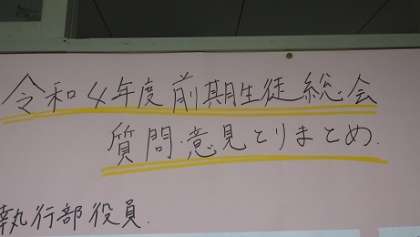 令和4年度前期生徒総会
質問・意見とりまとめ.
執行部役員.